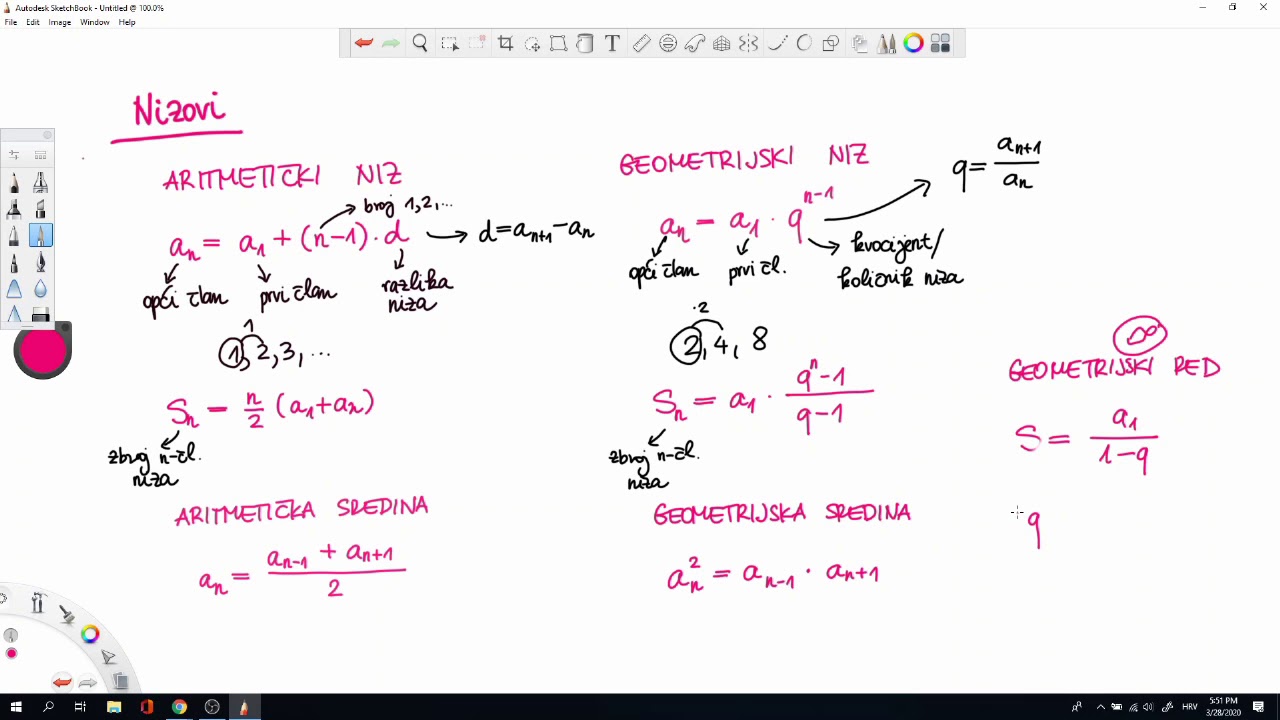 Autodesk SketchBook - Untitled @ 100.0%
File Edit Image Window Help
Nizovi
ARITMETIČKI NIZ
broj 1,2,...
aₙ = a₁ + (n-1) · d
d = aₙ₊₁ - aₙ
opći član
prvi član
razlika
niza
1
1, 2, 3, ...
Sₙ = n/2 (a₁ + aₙ)
zbroj n-čl.
niza
ARITMETIČKA SREDINA
aₙ = (aₙ₋₁ + aₙ₊₁)/2
GEOMETRIJSKI NIZ
q = aₙ₊₁/aₙ
aₙ = a₁ · qⁿ⁻¹
opći član
prvi čl.
kvocijent/
količnik niza
·2
2, 4, 8
Sₙ = a₁ · (qⁿ-1)/(q-1)
zbroj n-čl.
niza
GEOMETRIJSKA SREDINA
aₙ² = aₙ₋₁ · aₙ₊₁
∞
GEOMETRIJSKI RED
S = a₁/(1-q)
q
HRV
5:51 PM
3/28/2020